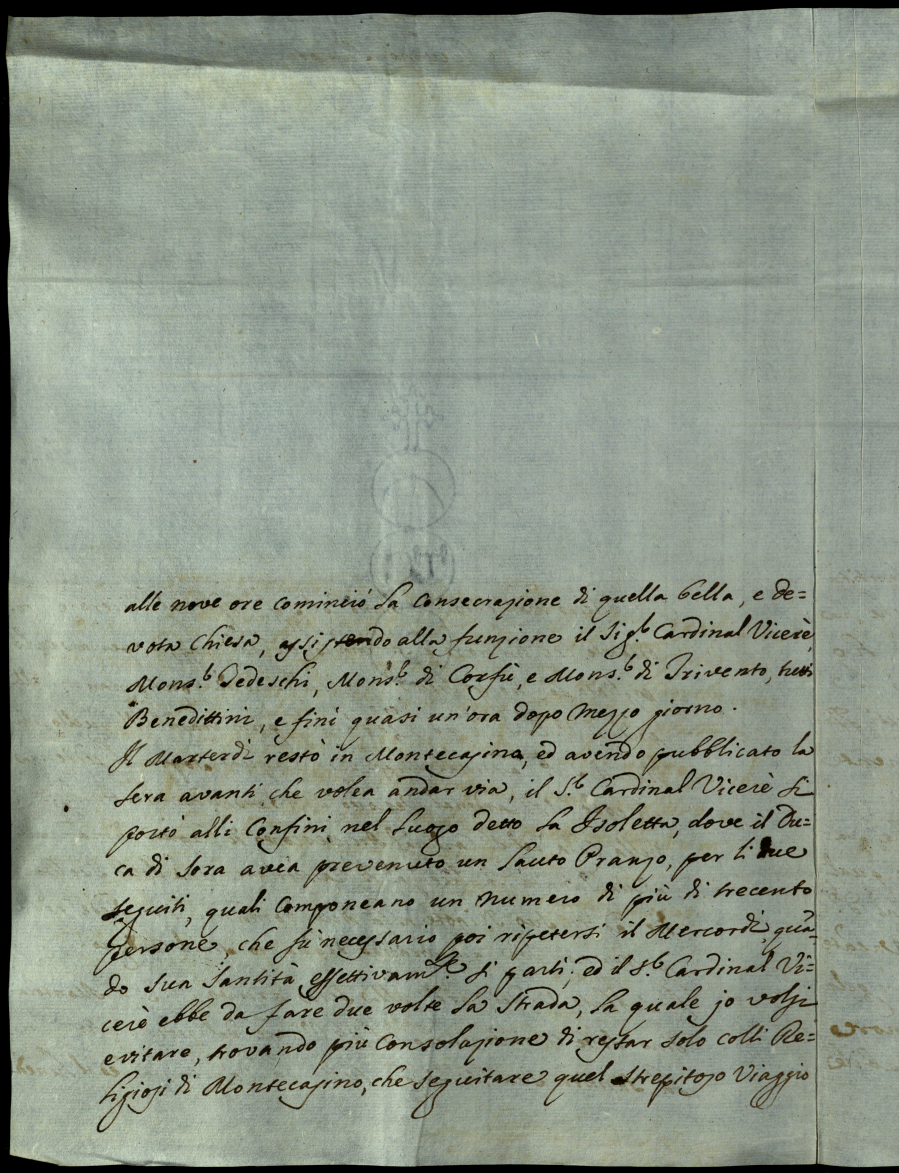 alle nove ore cominciò la Consecrazione di quella bella, e de=
vota Chiesa, assistendo alla funzione il Sig.r Cardinal Vicerè,
Mons.r Tedeschi, Mons.r di Corfù, e Mons.r di Trivento, tutti
Benedittini, e finì quasi un'ora dopo mezzo giorno.
Il Marterdì restò in Montecasino, ed avendo pubblicato la
sera avanti che volea andar via, il S.r Cardinal Vicerè si
portò alli Confini, nel luogo detto la Isoletta, dove il Du=
ca di Sora avea prevenuto un lauto Pranzo, per li due
seguiti, quali componeano un numero di più di trecento
persone, che fù necessario poi ripetersi il Mercordì, quā=
do sua Santità effettivam.te si partì; ed il S.r Cardinal Vi=
cerè ebbe da fare due volte la Strada, la quale jo volsi
evitare, trovando più consolazione di restar solo colli Re=
ligiosi di Montecasino, che seguitare quel strepitoso Viaggio